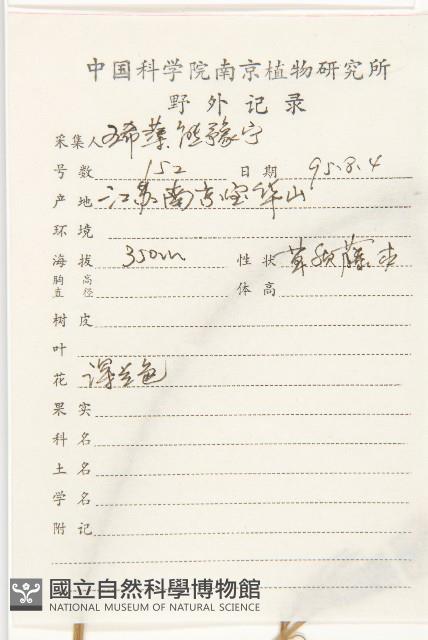 中国科学院南京植物研究所
野外记录
采集人 熊豫宁
号数 152 日期 95.8.4
产地 江苏南京宝华山
环境
海拔 350m 性状 草质藤本
胸高直径 体高
树皮
叶
花 深兰色
果实
科名
土名
学名
附记
國立自然科學博物館
NATIONAL MUSEUM OF NATURAL SCIENCE